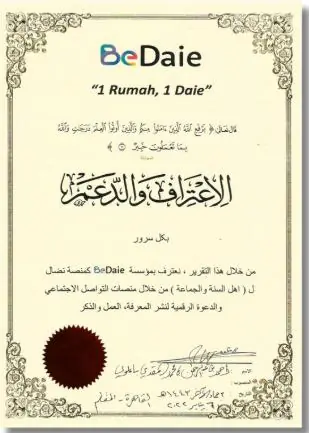 BeDaie
“1 Rumah, 1 Daie”
قال تعالى ﴿ يَرْفَعِ ٱللَّهُ ٱلَّذِينَ ءَامَنُوا۟ مِنكُمْ وَٱلَّذِينَ أُوتُوا۟ ٱلْعِلْمَ دَرَجَٰتٍ وَٱللَّهُ
بِمَا تَعْمَلُونَ خَبِيرٌ ﴾
الاعتراف والدعم
بكل سرور
من خلال هذا التقرير ، نعترف بمؤسسة BeDaie كمنصة نضال
ل ( اهل السنة والجماعة ) من خلال منصات التواصل الاجتماعي
والدعوة الرقمية لنشر المعرفة، العمل والذكر